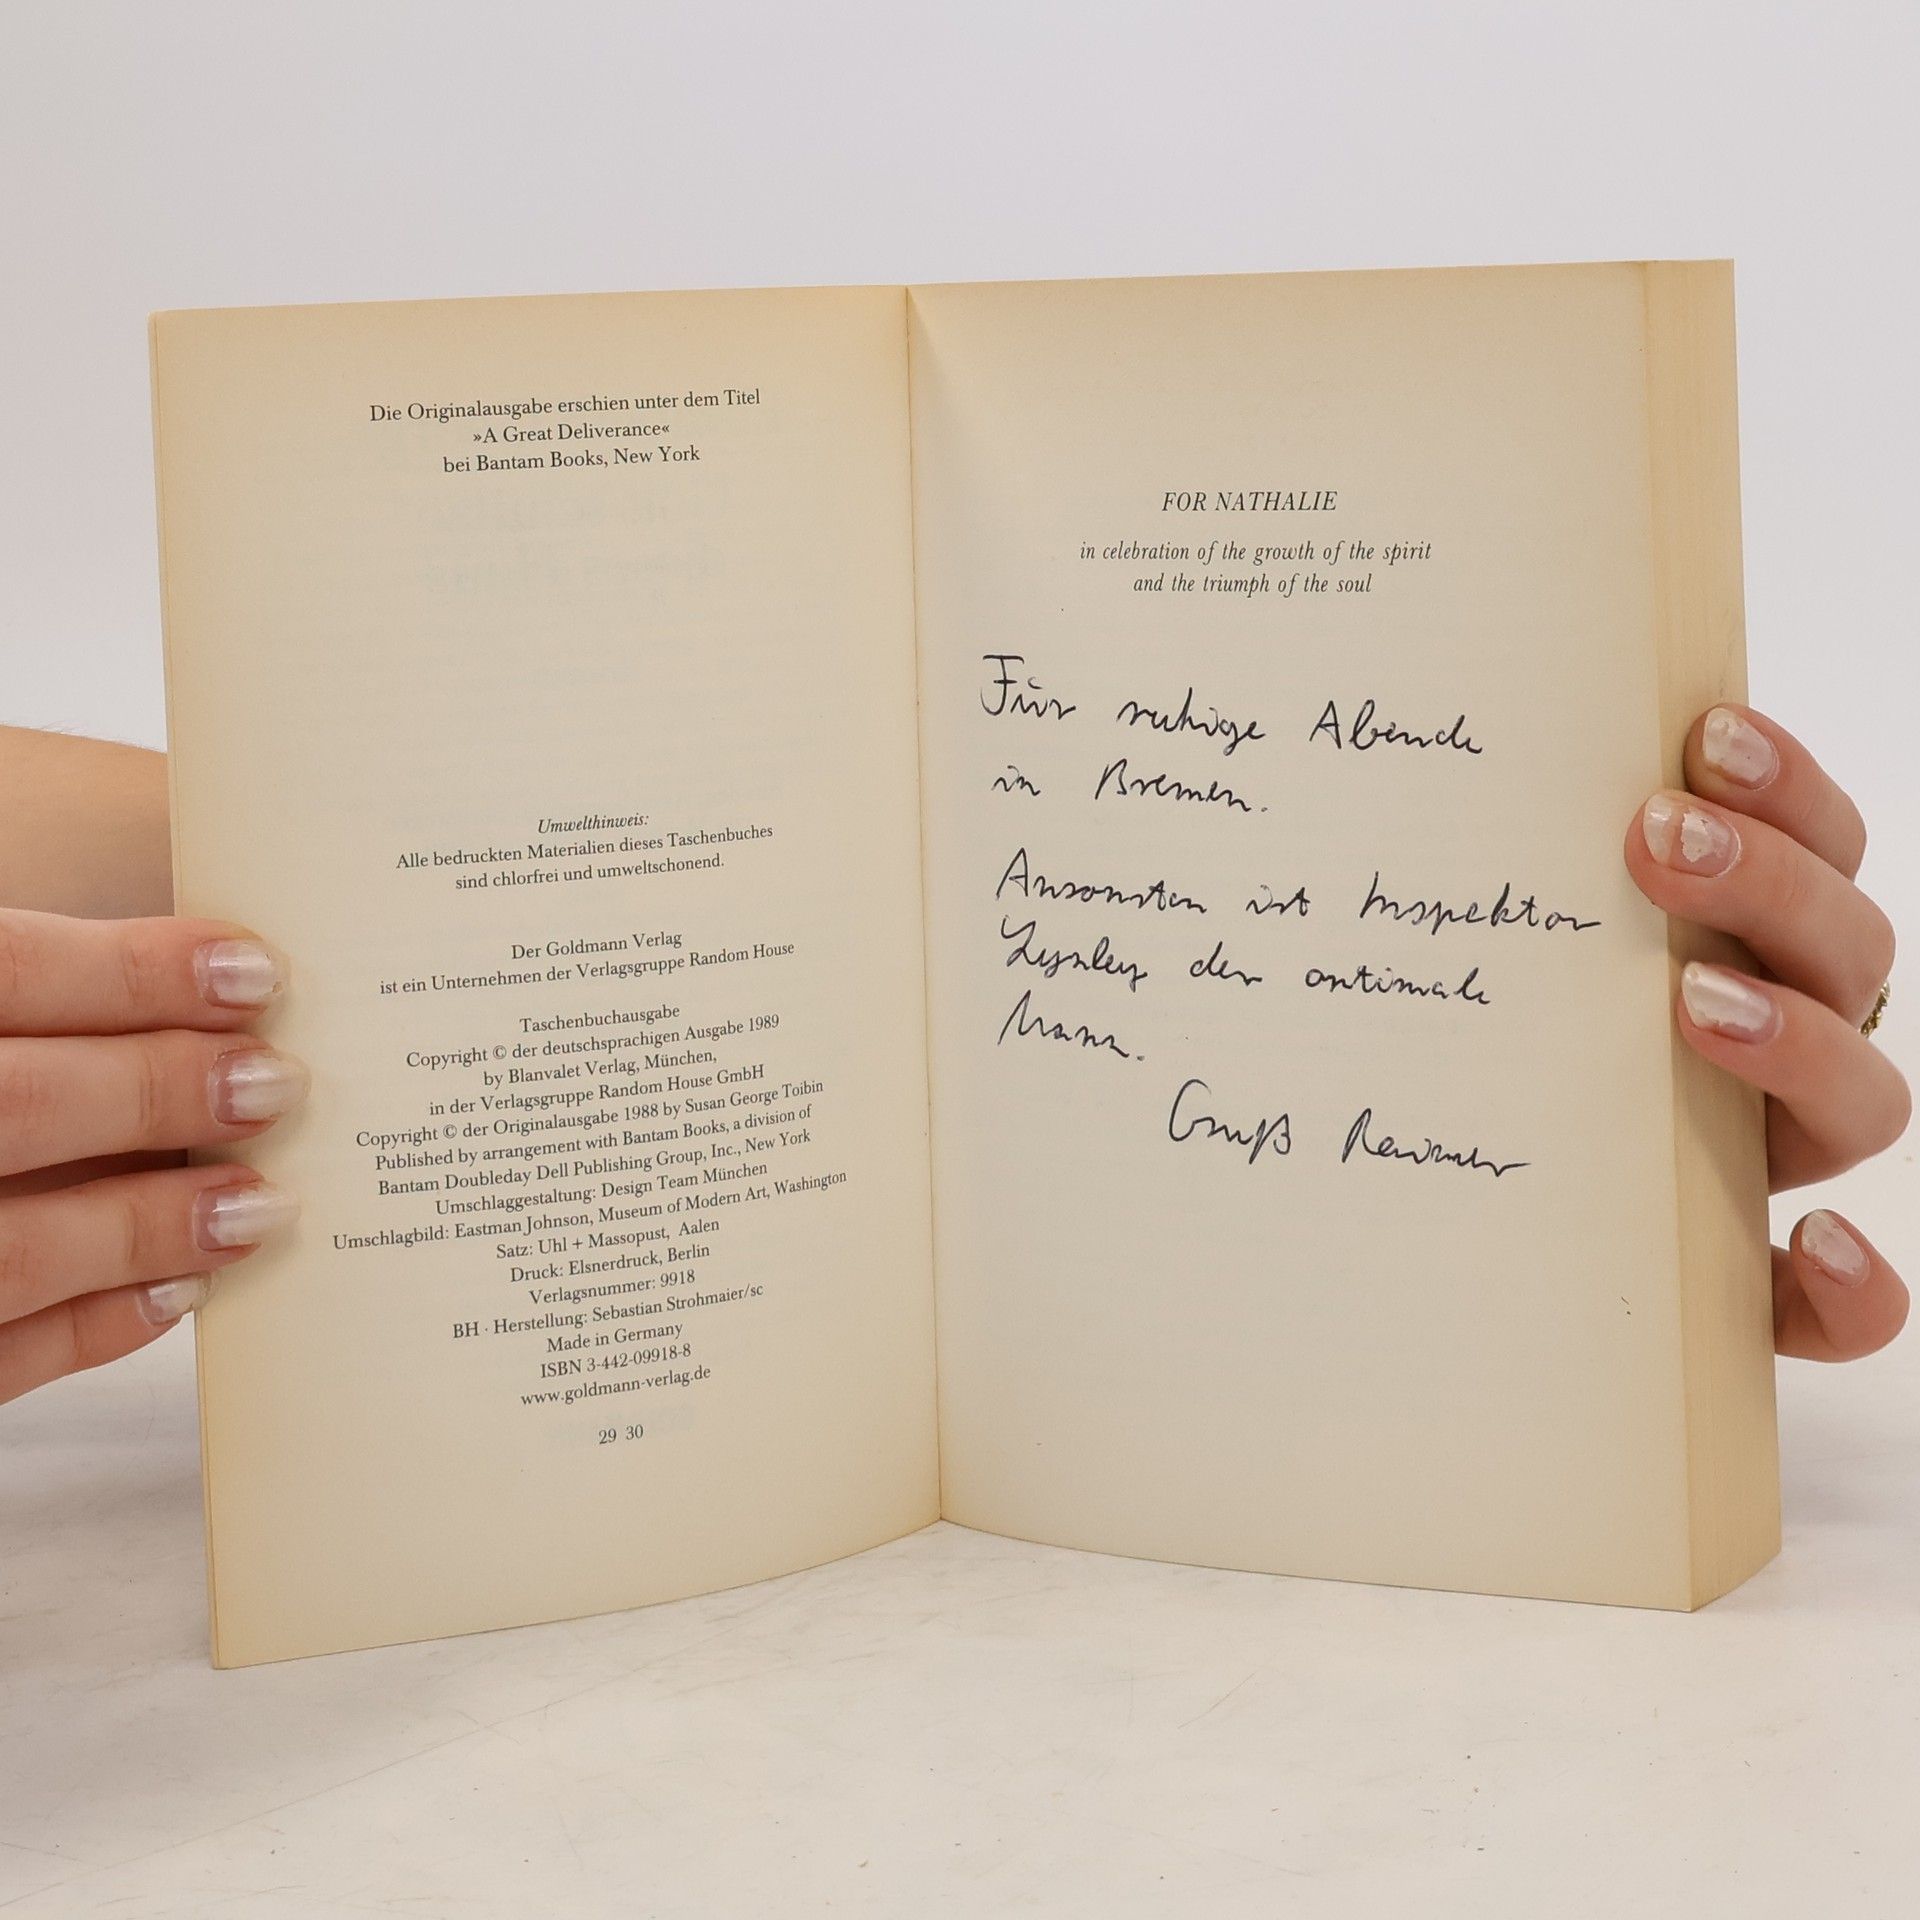 Die Originalausgabe erschien unter dem Titel
»A Great Deliverance«
bei Bantam Books, New York
Umwelthinweis:
Alle bedruckten Materialien dieses Taschenbuches
sind chlorfrei und umweltschonend.
Der Goldmann Verlag
ist ein Unternehmen der Verlagsgruppe Random House
Taschenbuchausgabe
Copyright © der deutschsprachigen Ausgabe 1989
by Blanvalet Verlag, München,
in der Verlagsgruppe Random House GmbH
Copyright © der Originalausgabe 1988 by Susan George Toibin
Published by arrangement with Bantam Books, a division of
Bantam Doubleday Dell Publishing Group, Inc., New York
Umschlaggestaltung: Design Team München
Umschlagbild: Eastman Johnson, Museum of Modern Art, Washington
Satz: Uhl + Massopust, Aalen
Druck: Elsnerdruck, Berlin
Verlagsnummer: 9918
BH · Herstellung: Sebastian Strohmaier/sc
Made in Germany
ISBN 3-442-09918-8
www.goldmann-verlag.de
29 30
FOR NATHALIE
in celebration of the growth of the spirit
and the triumph of the soul
Für ruhige Abende
in Bremen.
Ansonsten ist Inspektor
Lynley der optimale
Mann.
Gruß Reimer